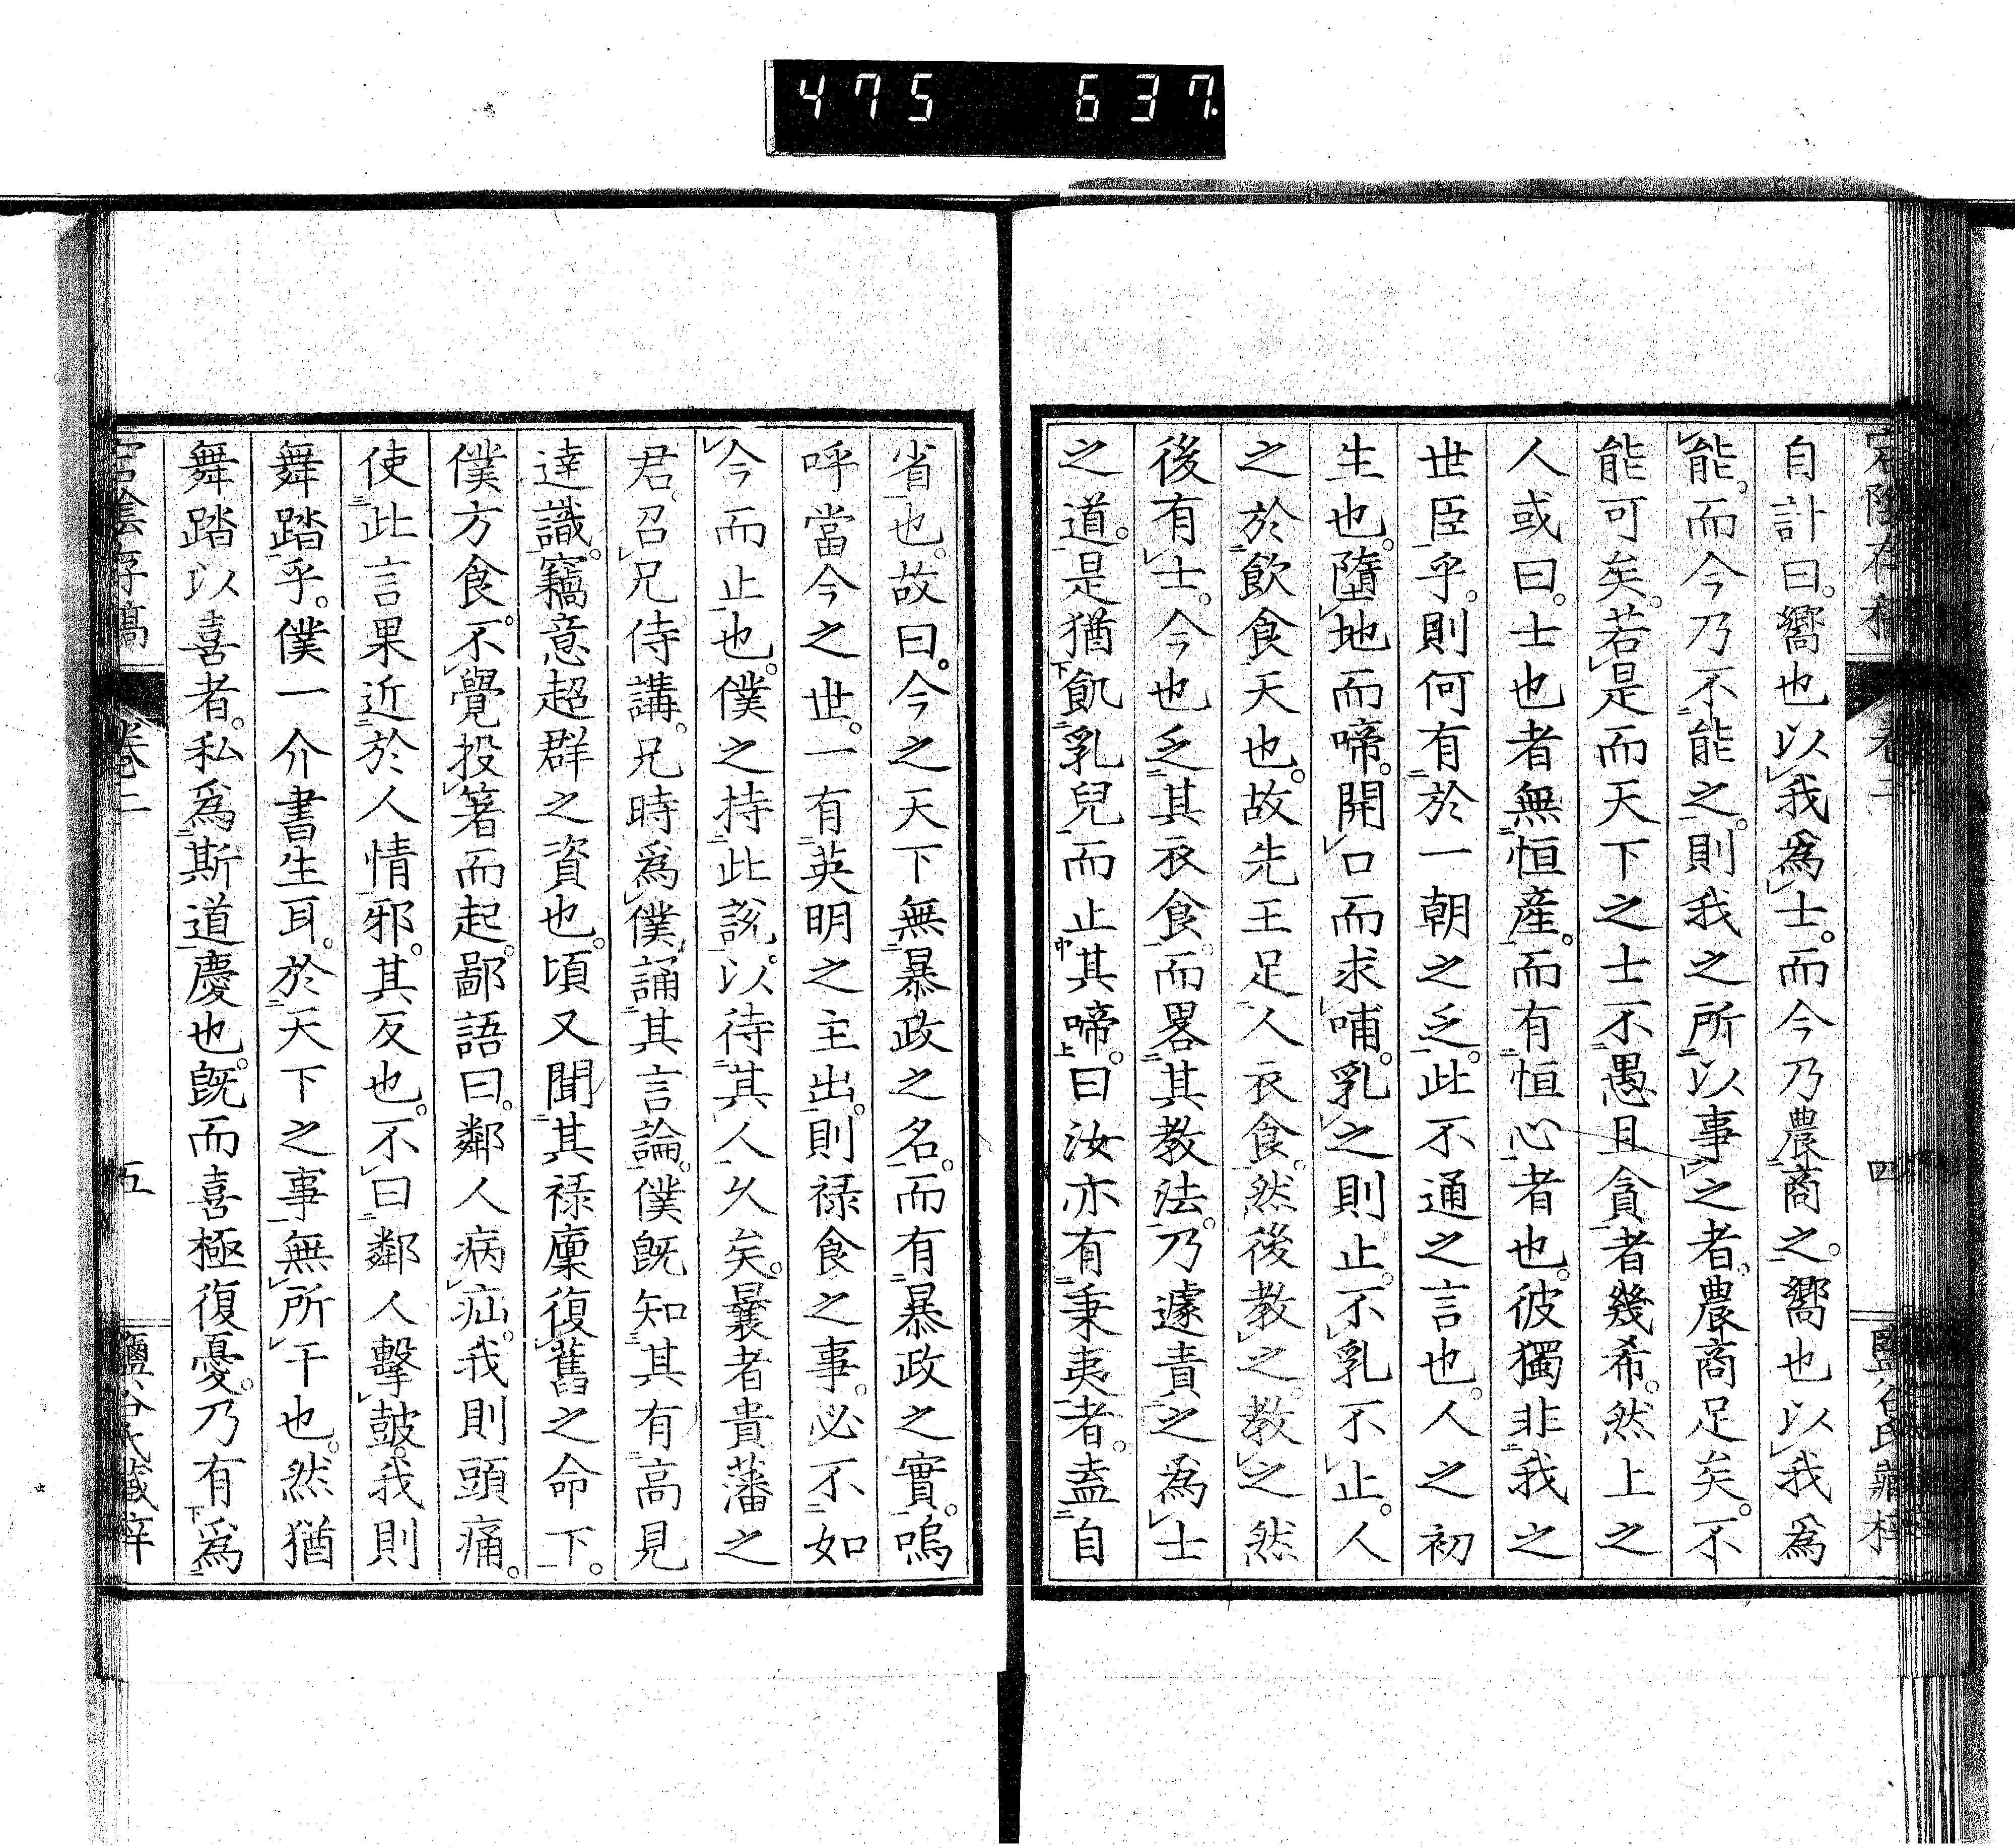 475 637
自計曰。嚮也以我爲士。而今乃農商之。嚮也以我爲
能。而今乃不能之。則我之所以事之者。農商足矣。不
能可矣。若是而天下之士不愚且貪者幾希。然上之
人或曰。士也者無恒産。而有恒心者也。彼獨非我之
世臣乎。則何有於一朝之乏。此不通之言也。人之初
生也。墮地而啼。開口而求哺。乳之則止。不乳不止。人
之於飲食天也。故先王足人衣食。然後教之。教之然
後有士。今也乏其衣食。而畧其教法。乃遽責之爲士
之道。是猶飢乳兒而止其啼。曰汝亦有秉夷者。盍自
省也。故曰。今之天下無暴政之名。而有暴政之實。嗚
呼當今之世。一有英明之主出。則禄食之事。必不如
今而止也。僕之持此説。以待其人久矣。曩者貴藩之
君召兄侍講。兄時爲僕誦其言論。僕既知其有高見
達識。竊意超群之資也。頃又聞其禄廩復舊之命下。
僕方食。不覺投箸而起。鄙語曰。鄰人病疝。我則頭痛。
使此言果近於人情邪。其反也。不曰鄰人擊鼓。我則
舞踏乎。僕一介書生耳。於天下之事無所干也。然猶
舞踏以喜者。私爲斯道慶也。既而喜極復憂。乃有爲
宕陰存稿 卷二 五 鹽谷氏藏梓